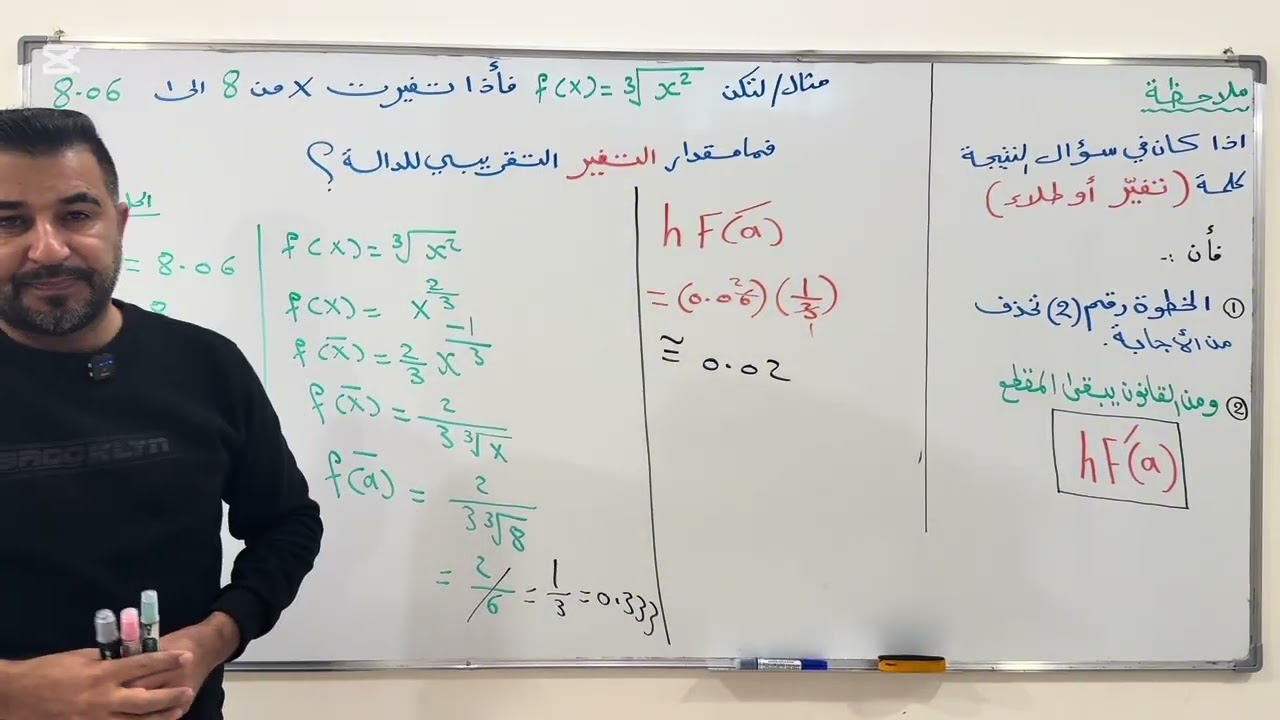 مثال/ لتكن f(x) = ∛x² فأذا تغيرت x من 8 الى 8.06
فما مقدار التغير التقريبي للدالة ؟
الحل
= 8.06
f(x) = ∛x²
f(x) = x^(2/3)
f̄(x) = 2/3 x^(-1/3)
f̄(x) = 2/(3∛x)
f̄(a) = 2/(3∛8)
= 2/6 = 1/3 = 0.333
h F̄(a)
= (0.06) (1/3)
2
1
≅ 0.02
ملاحظة
اذا كان في سؤال النتيجة
كلمة (تغيّر أو طلاء)
فأن :-
① الخطوة رقم (2) تحذف
من الأجابة.
② ومن القانون يبقى المقطع
hF′(a)
BROOKLYN